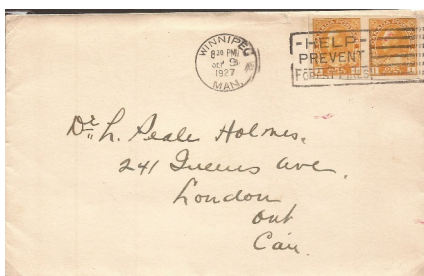 WINNIPEG
8 30 PM
SEP 9
1927
MAN.
HELP
PREVENT
FOREST FIRES
Dr. L. Seale Holmes.
241 Queens Ave.
London
Ont
Can.